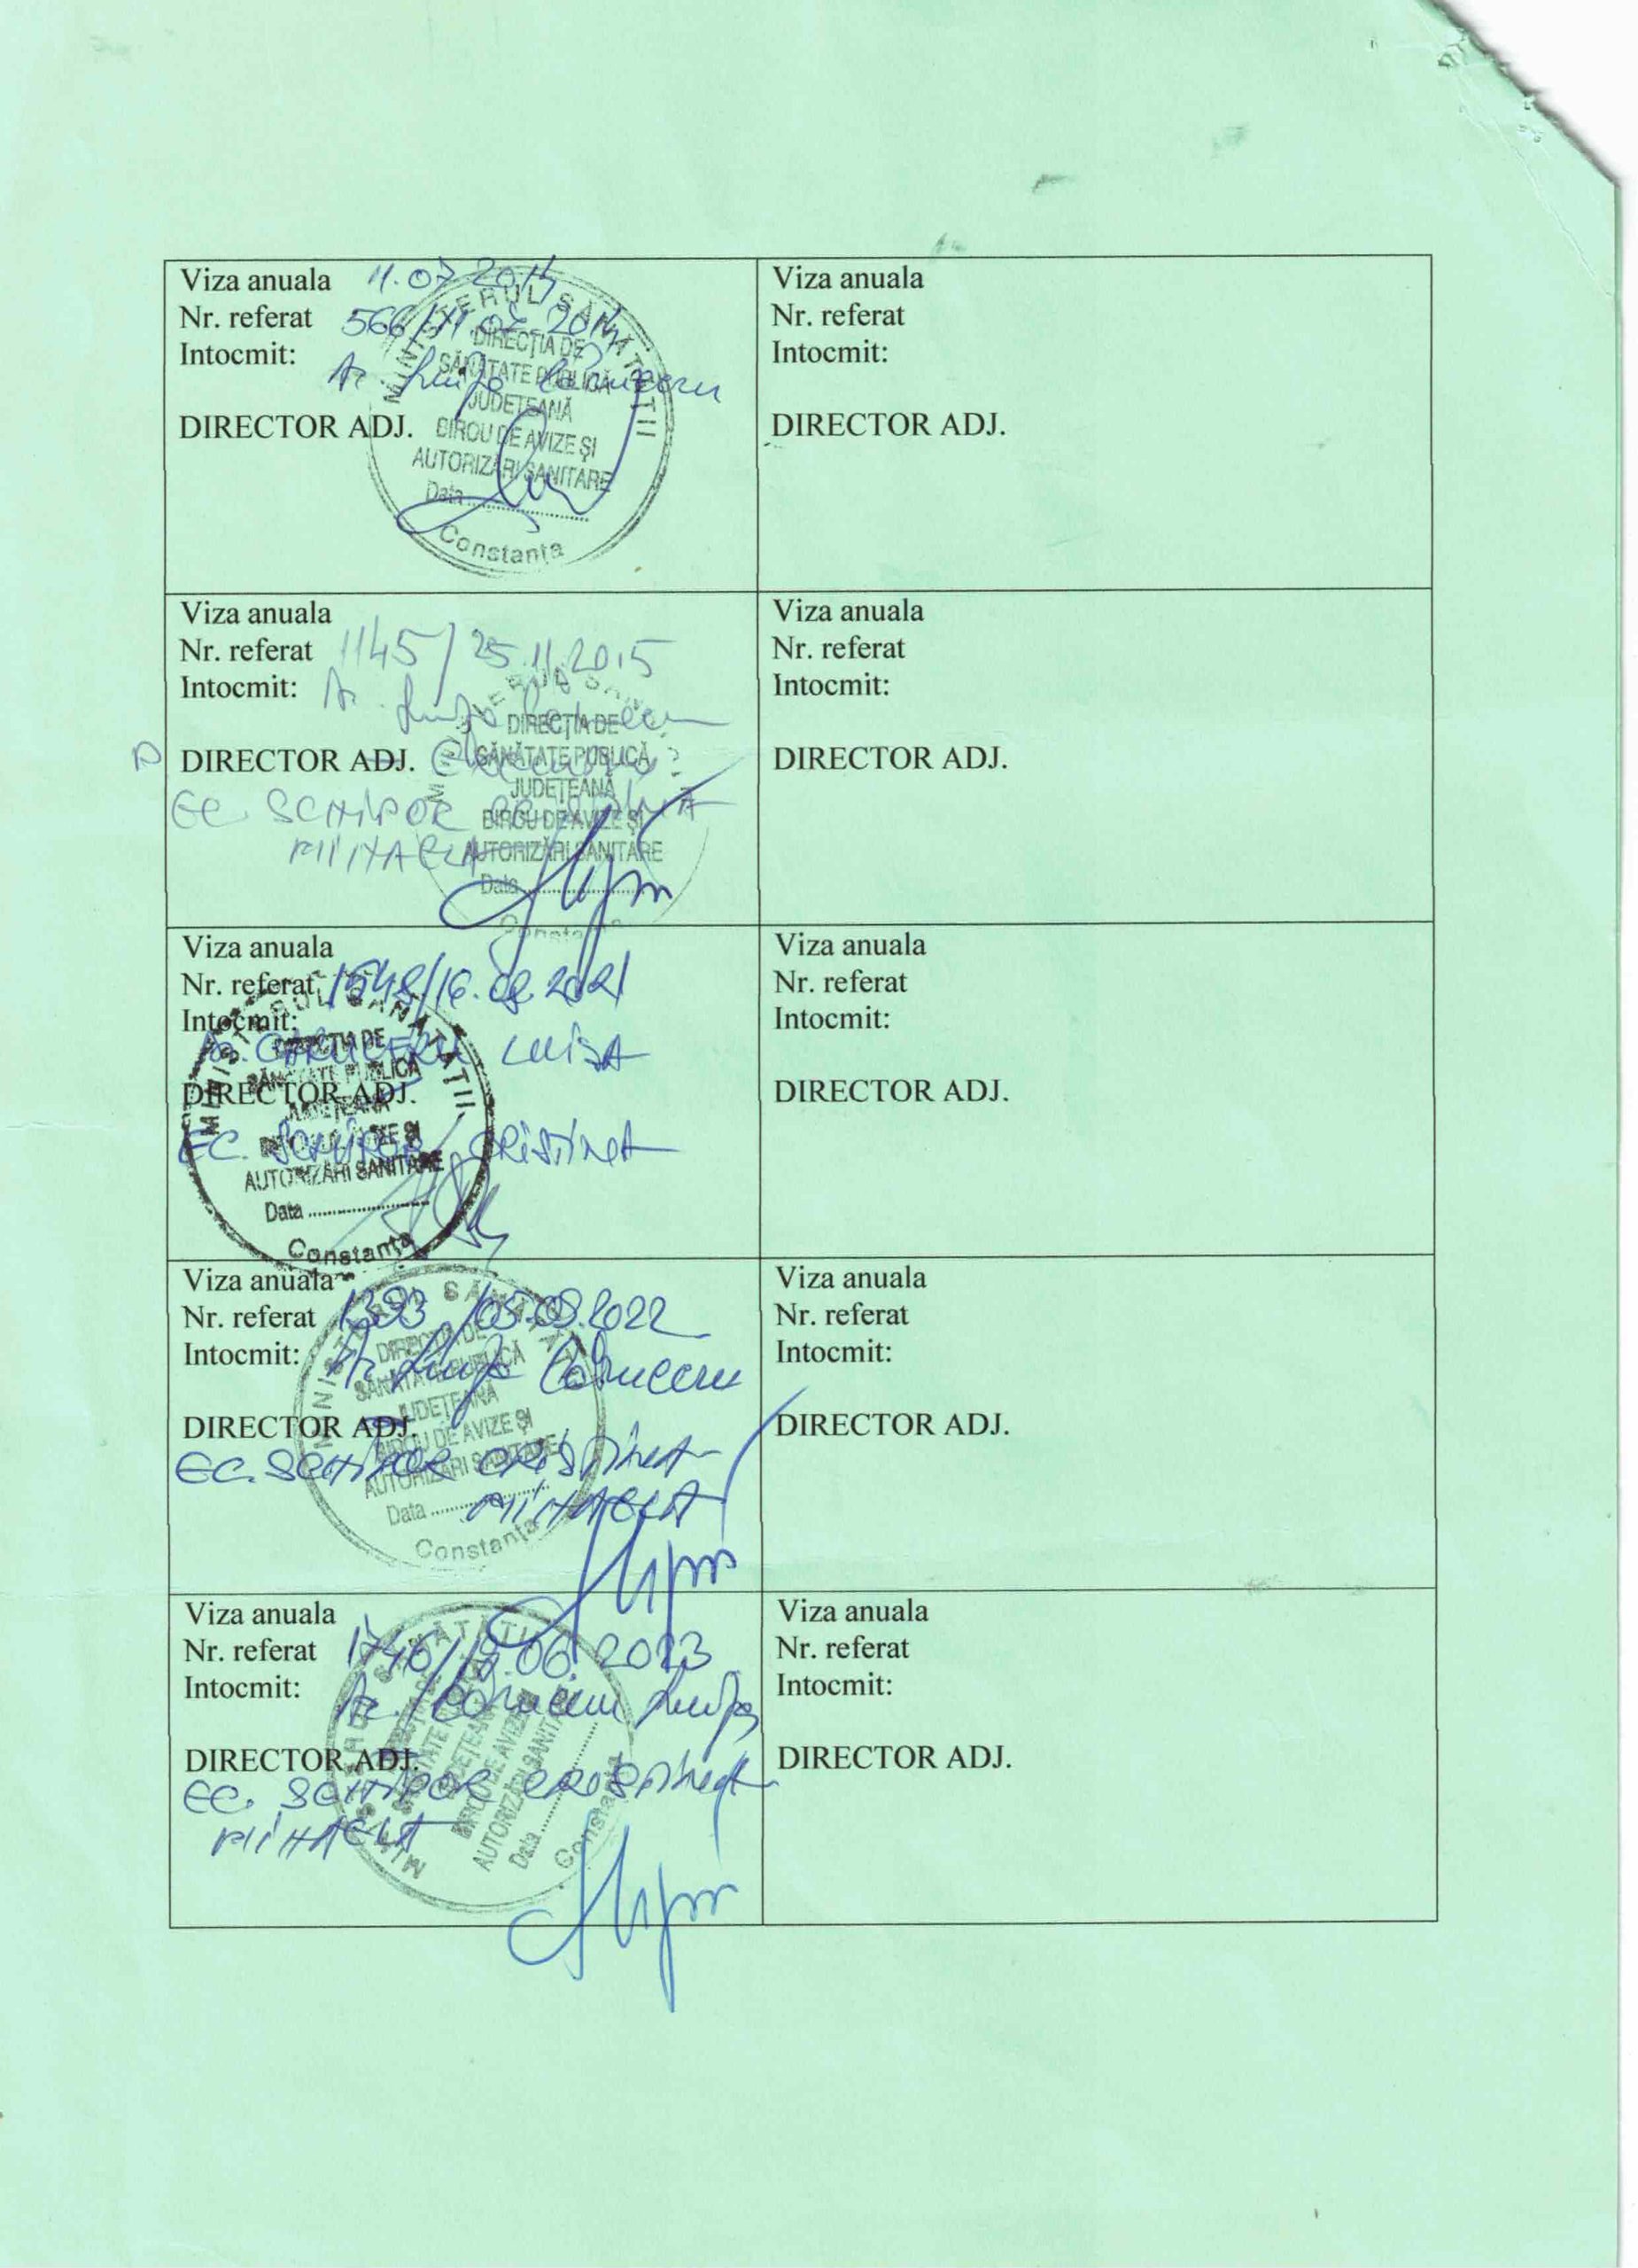 Viza anuala 11.07.2014
Nr. referat 566/11.07.2014
Intocmit:
As. Luiza
DIRECTOR ADJ.
MINISTERUL SĂNĂTĂȚII
DIRECȚIA DE
SĂNĂTATE PUBLICĂ
JUDEȚEANĂ
BIROU DE AVIZE ȘI
AUTORIZĂRI SANITARE
Data
Constanța
Viza anuala
Nr. referat
Intocmit:
DIRECTOR ADJ.
Viza anuala
Nr. referat 1145/25.11.2015
Intocmit: As. Luiza
DIRECTOR ADJ.
EC SCHIPOR
MIHAELA
DIRECȚIA DE
SĂNĂTATE PUBLICĂ
JUDEȚEANĂ
BIROU DE AVIZE ȘI
AUTORIZĂRI SANITARE
Data
Constanța
Viza anuala
Nr. referat
Intocmit:
DIRECTOR ADJ.
Viza anuala
Nr. referat
Intocmit:
LUIZA
DIRECTOR ADJ.
EC. SCHIPOR CRISTINA
MINISTERUL SĂNĂTĂȚII
DIRECȚIA DE
SĂNĂTATE PUBLICĂ
JUDEȚEANĂ
BIROU DE AVIZE ȘI
AUTORIZĂRI SANITARE
Data
Constanța
Viza anuala
Nr. referat
Intocmit:
DIRECTOR ADJ.
Viza anuala
Nr. referat
Intocmit: As. Luiza
DIRECTOR ADJ.
EC. SCHIPOR CRISTINA
MIHAELA
DIRECȚIA DE
SĂNĂTATE PUBLICĂ
JUDEȚEANĂ
BIROU DE AVIZE ȘI
AUTORIZĂRI SANITARE
Data
Constanța
Viza anuala
Nr. referat
Intocmit:
DIRECTOR ADJ.
Viza anuala
Nr. referat
Intocmit:
As. Luiza
DIRECTOR ADJ.
EC. SCHIPOR CRISTINA
MIHAELA
AUTORIZĂRI SANITARE
Data
Constanța
Viza anuala
Nr. referat
Intocmit:
DIRECTOR ADJ.